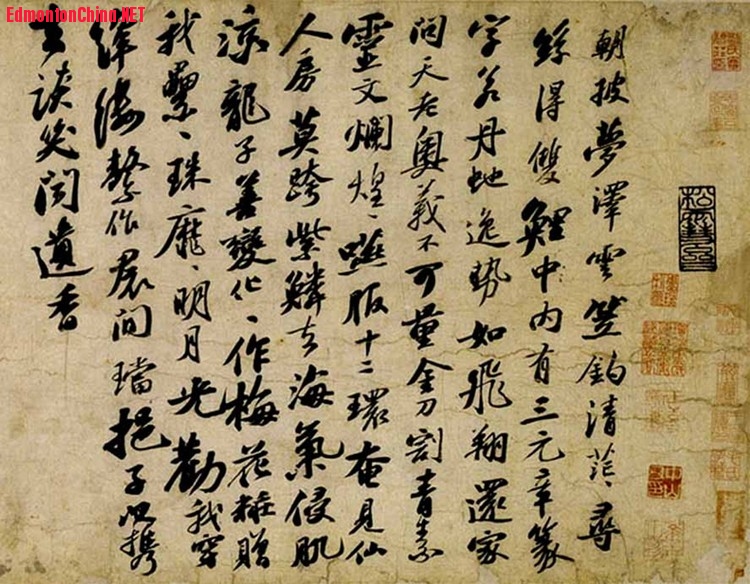 EdmontonChina.NET
朝披夢澤雲笠釣清茫〻尋
絲得雙鯉中內有三元章篆
字若丹虵逸勢如飛翔還家
問天老奧義不可量金刀割青素
靈文爛煌〻嚥服十二環奄見仙
人房莫跨紫鱗去海氣侵肌
涼龍子善變化〻作梅花粧贈
我纍〻珠靡〻明月光勸我穿
絳縷繫作裙間璫挹子以攜
去談笑聞遺香